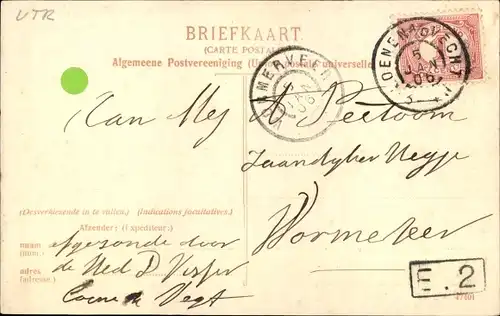 UTR
BRIEFKAART.
(CARTE POSTALE)
Algemeene Postvereeniging (Union postale universelle)
LOENEN A/D VECHT
5 JAN 06
WORMERVEER
Aan Mej A Peetoom
Zaandyker Wegje
Wormeveer
(Desverkiezende in te vullen.) (Indications facultatives.)
Afzender: (l'expéditeur:)
naam
(nom.)
afgezonde door
adres
(adresse.)
de Wed D Visser
Loenen Vegt
F. 2
47401